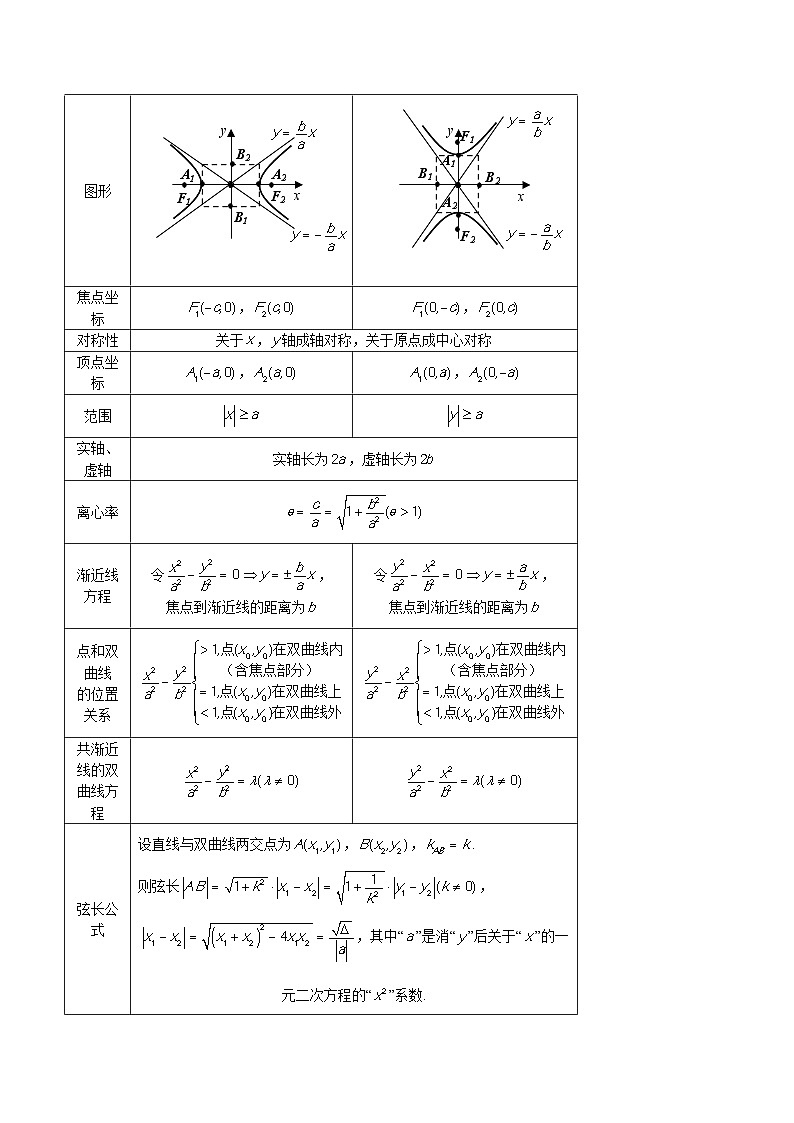 图形
y
y = b/a x
B2
A1
A2
F1
F2
x
B1
y = − b/a x
y
y = a/b x
F1
A1
B1
B2
x
A2
F2
y = − a/b x
焦点坐
标
F₁(−c,0)，F₂(c,0)
F₁(0,−c)，F₂(0,c)
对称性
关于 x，y轴成轴对称，关于原点成中心对称
顶点坐
标
A₁(−a,0)，A₂(a,0)
A₁(0,a)，A₂(0,−a)
范围
|x| ≥ a
|y| ≥ a
实轴、
虚轴
实轴长为 2a，虚轴长为 2b
离心率
e = c/a = √(1 + b²/a²) (e > 1)
渐近线
方程
令 x²/a² − y²/b² = 0 ⇒ y = ± b/a x，
焦点到渐近线的距离为 b
令 y²/a² − x²/b² = 0 ⇒ y = ± a/b x，
焦点到渐近线的距离为 b
点和双
曲线
的位置
关系
x²/a² − y²/b² { > 1,点(x₀,y₀)在双曲线内
（含焦点部分）
= 1,点(x₀,y₀)在双曲线上
< 1,点(x₀,y₀)在双曲线外
y²/a² − x²/b² { > 1,点(x₀,y₀)在双曲线内
（含焦点部分）
= 1,点(x₀,y₀)在双曲线上
< 1,点(x₀,y₀)在双曲线外
共渐近
线的双
曲线方
程
x²/a² − y²/b² = λ(λ ≠ 0)
y²/a² − x²/b² = λ(λ ≠ 0)
弦长公
式
设直线与双曲线两交点为 A(x₁,y₁)，B(x₂,y₂)，k_AB = k.
则弦长 |AB| = √(1+k²) · |x₁ − x₂| = √(1 + 1/k²) · |y₁ − y₂|(k ≠ 0)，
|x₁ − x₂| = √((x₁ + x₂)² − 4x₁x₂) = √Δ/|a|，其中“a”是消“y”后关于“x”的一
元二次方程的“x²”系数.